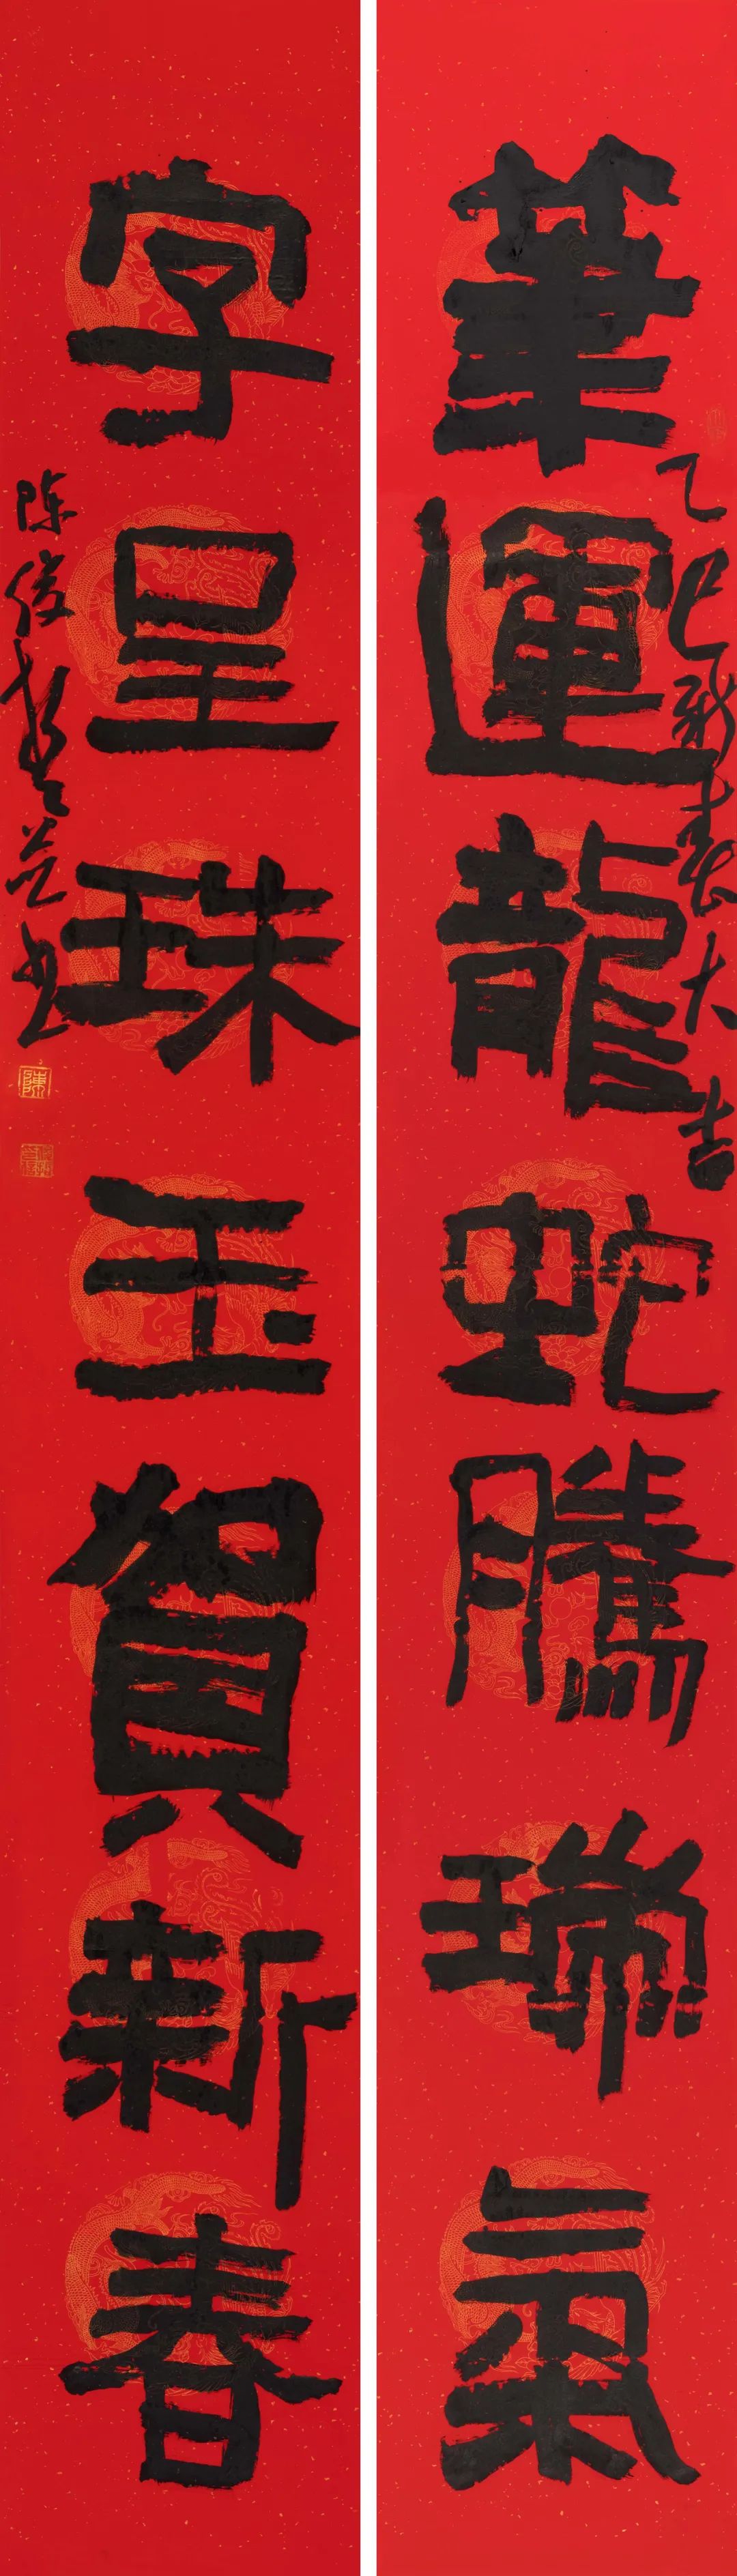 筆運龍蛇騰瑞氣
乙巳新春大吉
字呈珠玉賀新春
陈俊
書
陳